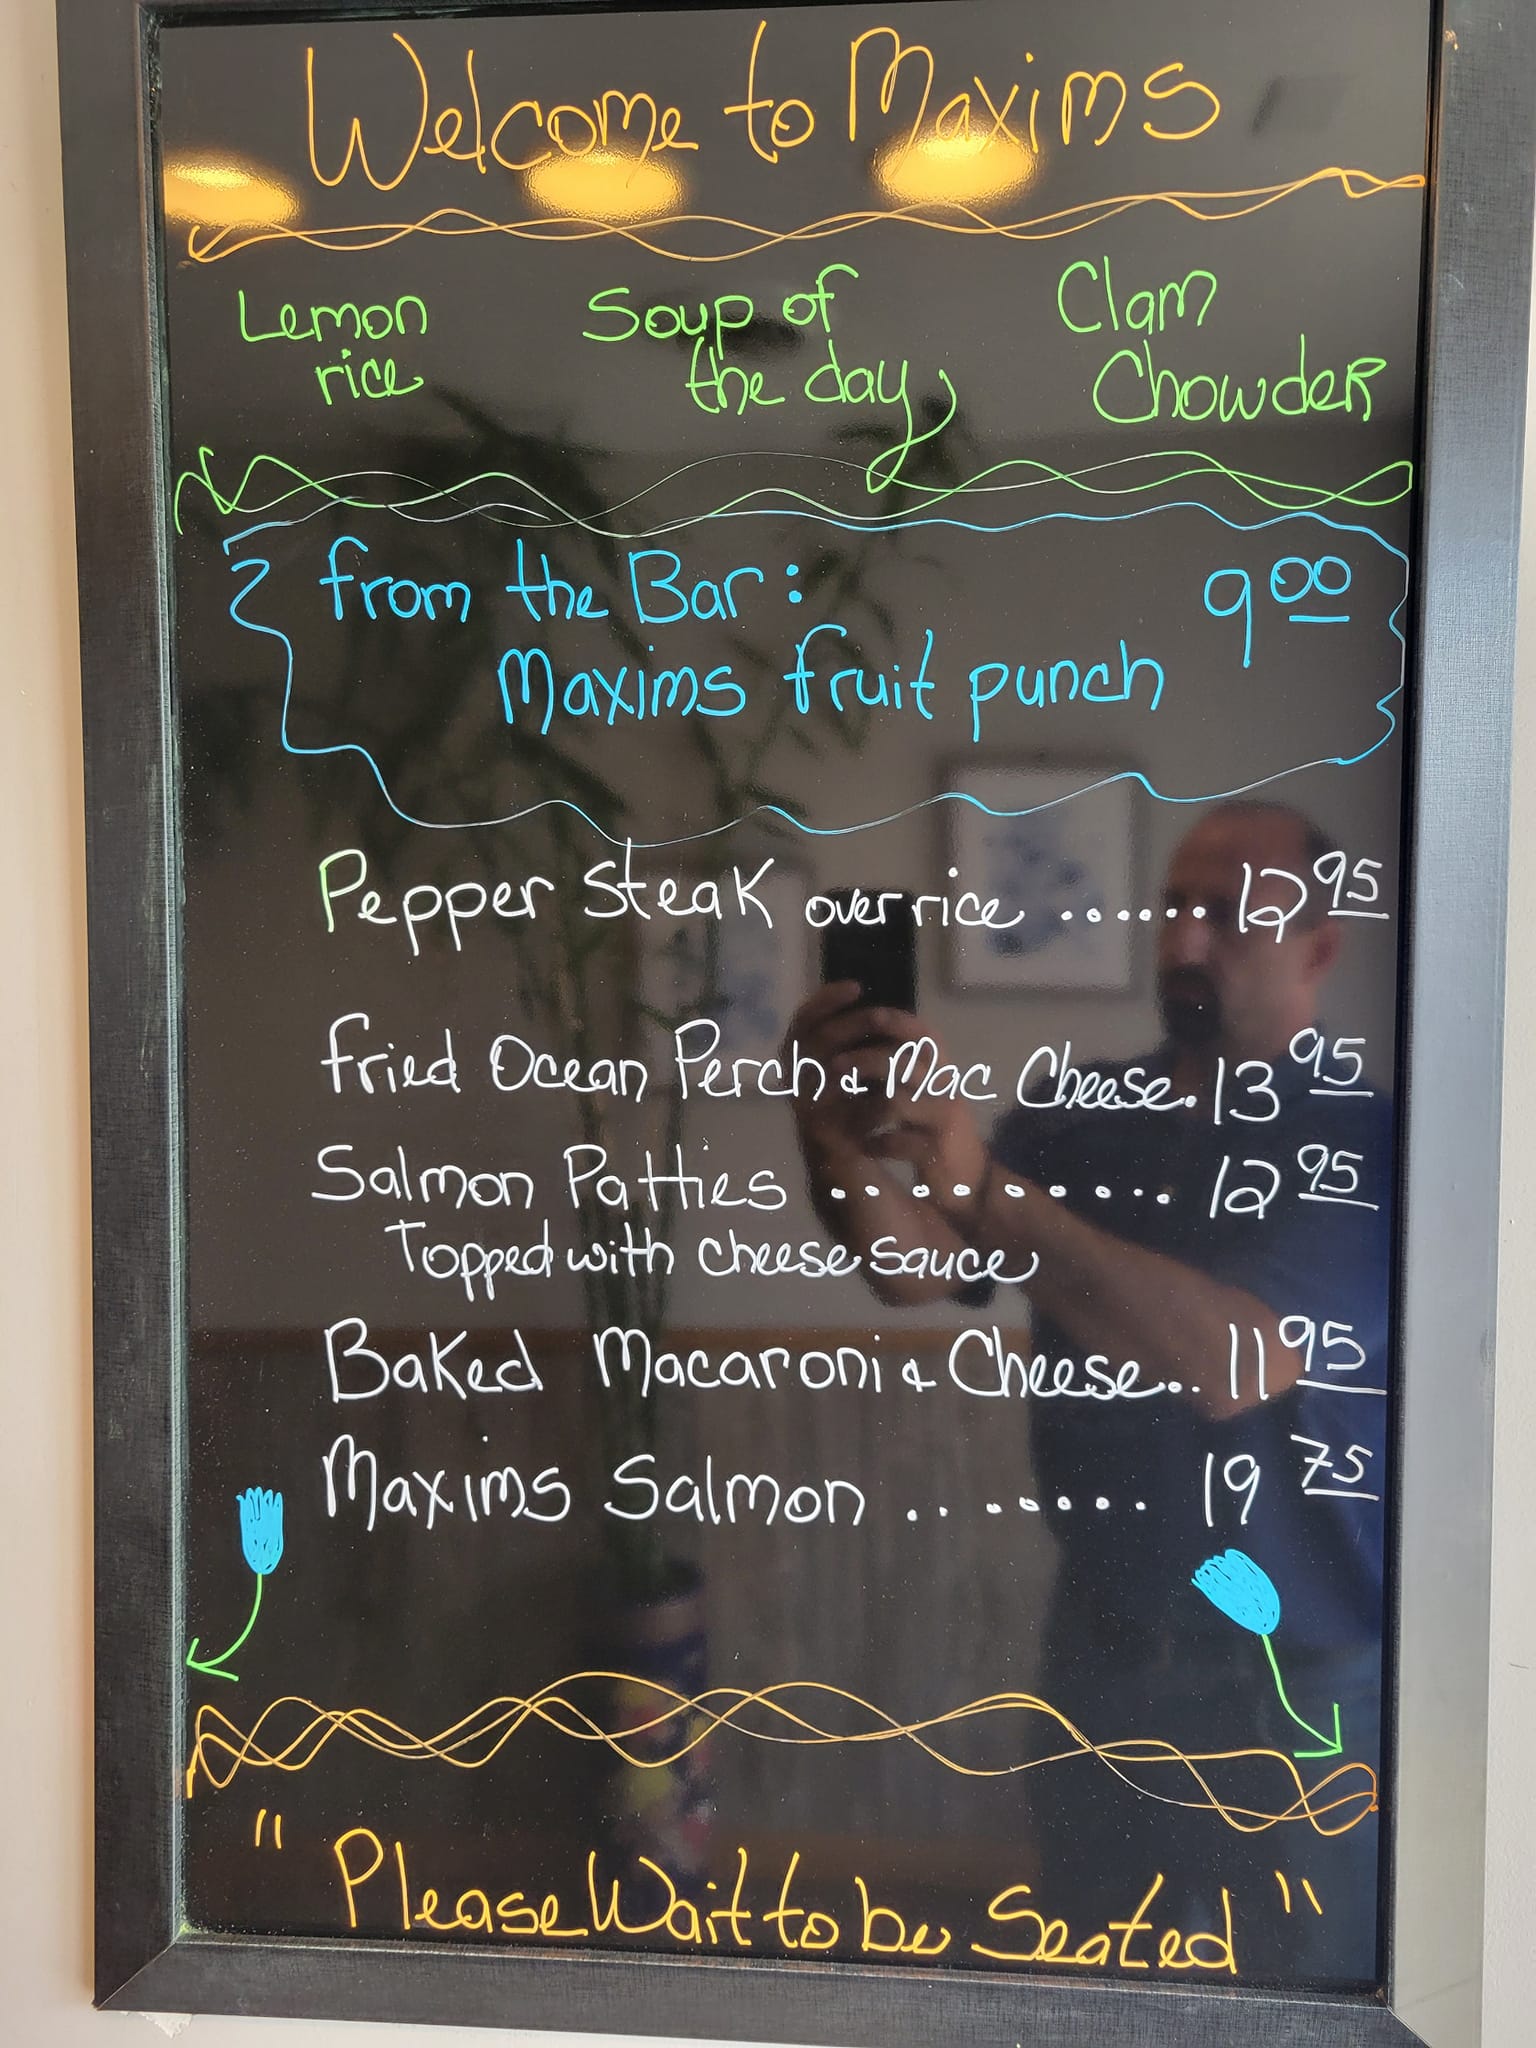 Welcome to Maxims
Lemon
rice
Soup of
the day
Clam
Chowder
from the Bar: 9 00
Maxims fruit punch
Pepper Steak over rice ...... 12 95
Fried Ocean Perch & Mac Cheese. 13 95
Salmon Patties ........ 12 95
Topped with cheese sauce
Baked Macaroni & Cheese.. 11 95
Maxims Salmon ....... 19 75
"Please Wait to be Seated"